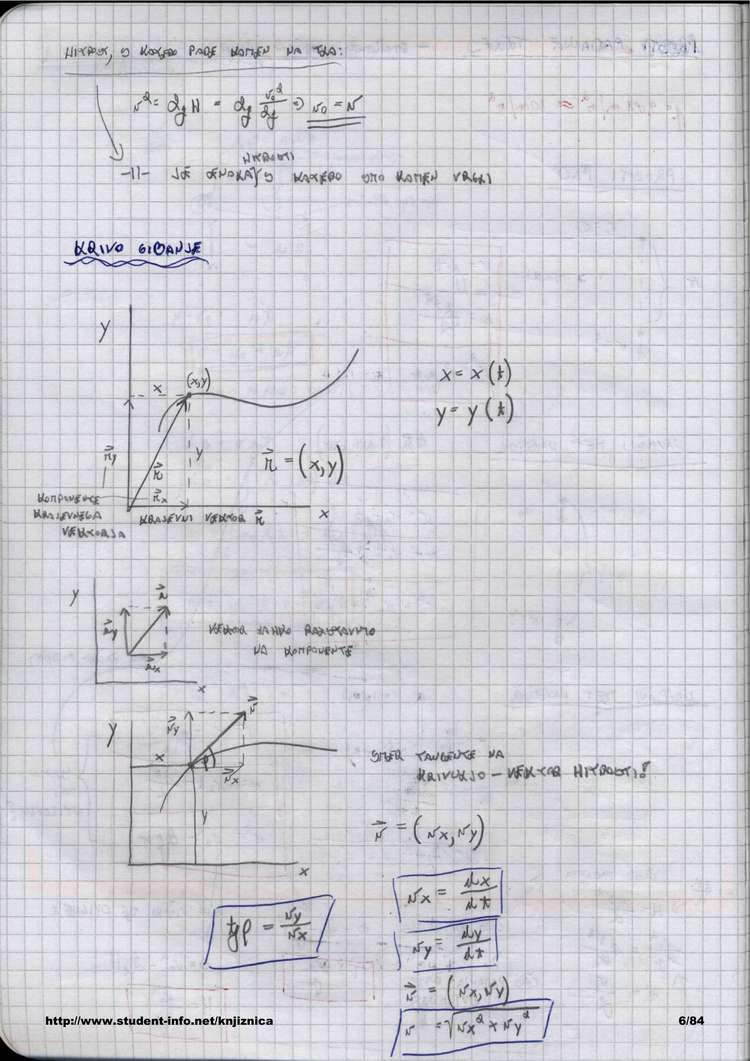 HITROST, S KATERO PADE KAMEN NA TLA:
v² = 2gH = 2g v₀²/2g ⇒ v₀ = v
HITROSTI
-II- JE ENAKA, S KATERO SMO KAMEN VRGLI
KRIVO GIBANJE
y
x
(x,y)
x = x(t)
y = y(t)
y
r⃗y
r⃗
r⃗ = (x,y)
r⃗x
KOMPONENTE
KRAJEVNEGA
VEKTORJA
KRAJEVNI VEKTOR r⃗
x
y
r⃗
r⃗y
r⃗x
x
VEKTOR LAHKO RAZSTAVIMO
NA KOMPONENTE
y
v⃗y
v⃗
x
φ
v⃗x
y
x
SMER TANGENTE NA
KRIVULJO – VEKTOR HITROSTI!
v⃗ = (vx, vy)
vx = dx/dt
tgφ = vy/vx
vy = dy/dt
v⃗ = (vx, vy)
v = √vx² + vy²
http://www.student-info.net/knjiznica
6/84